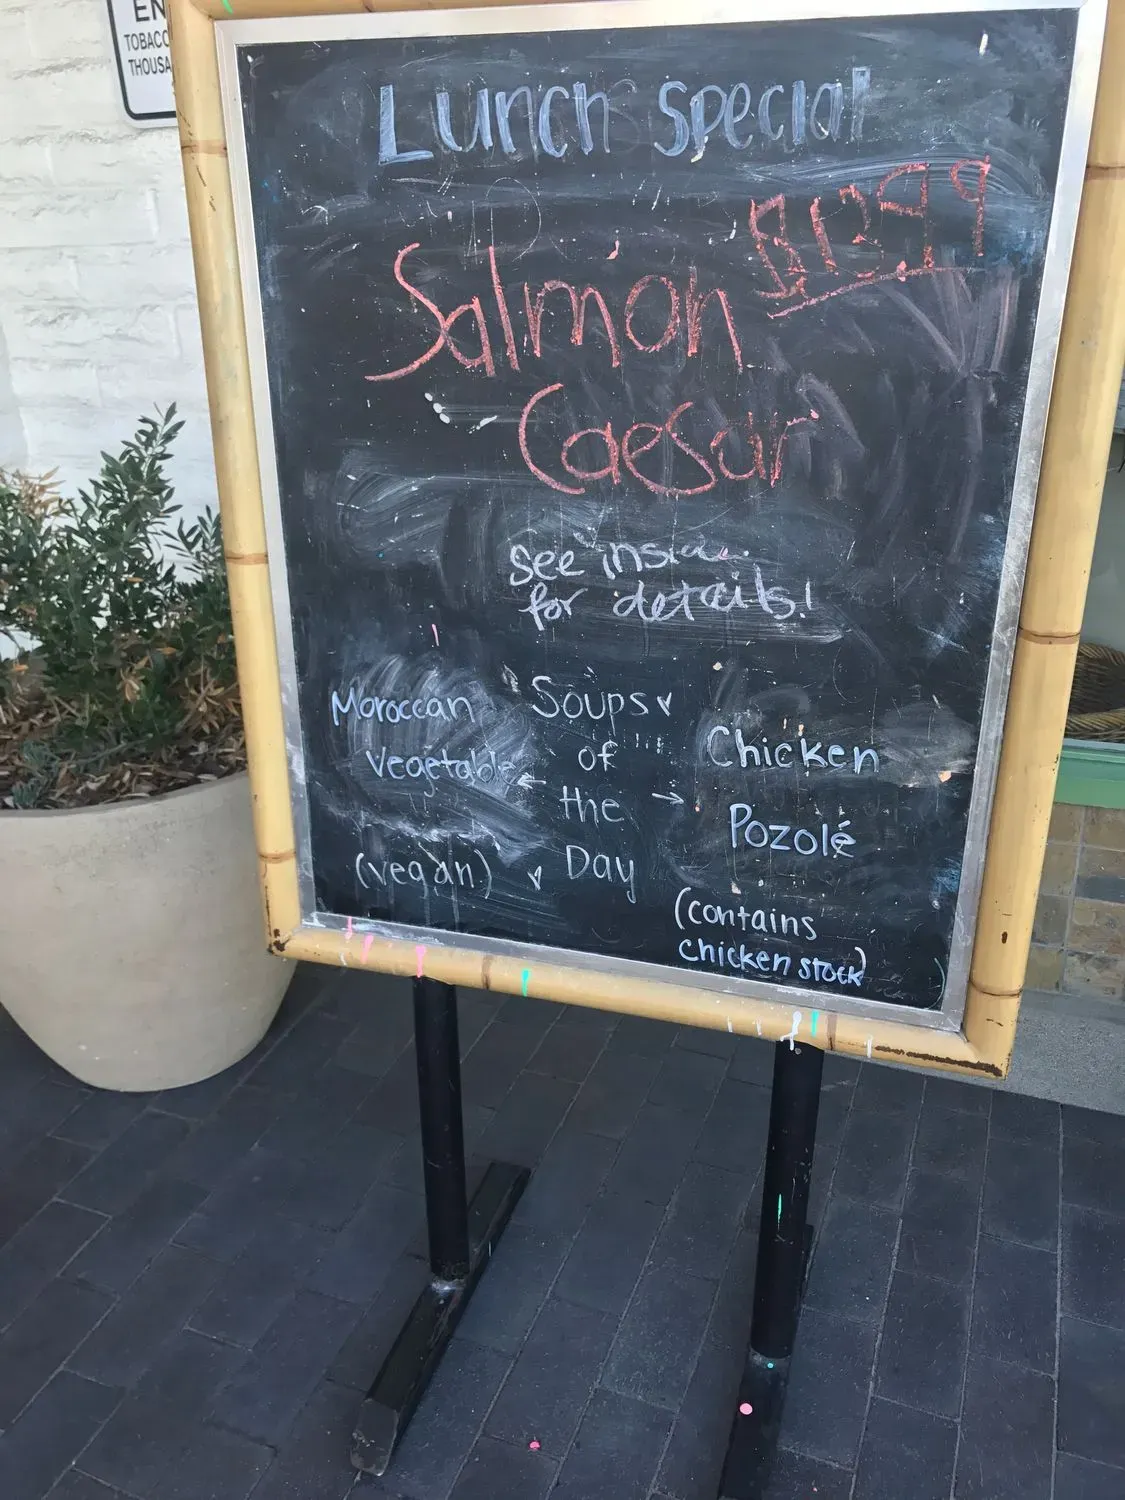 EN
TOBACC
THOUSA
Lunch Special
$12.99
Salmon
Caesar
see inside
for details!
Soups
of
the
Day
Moroccan
Vegetable
(vegan)
Chicken
Pozolé
(contains
chicken stock)